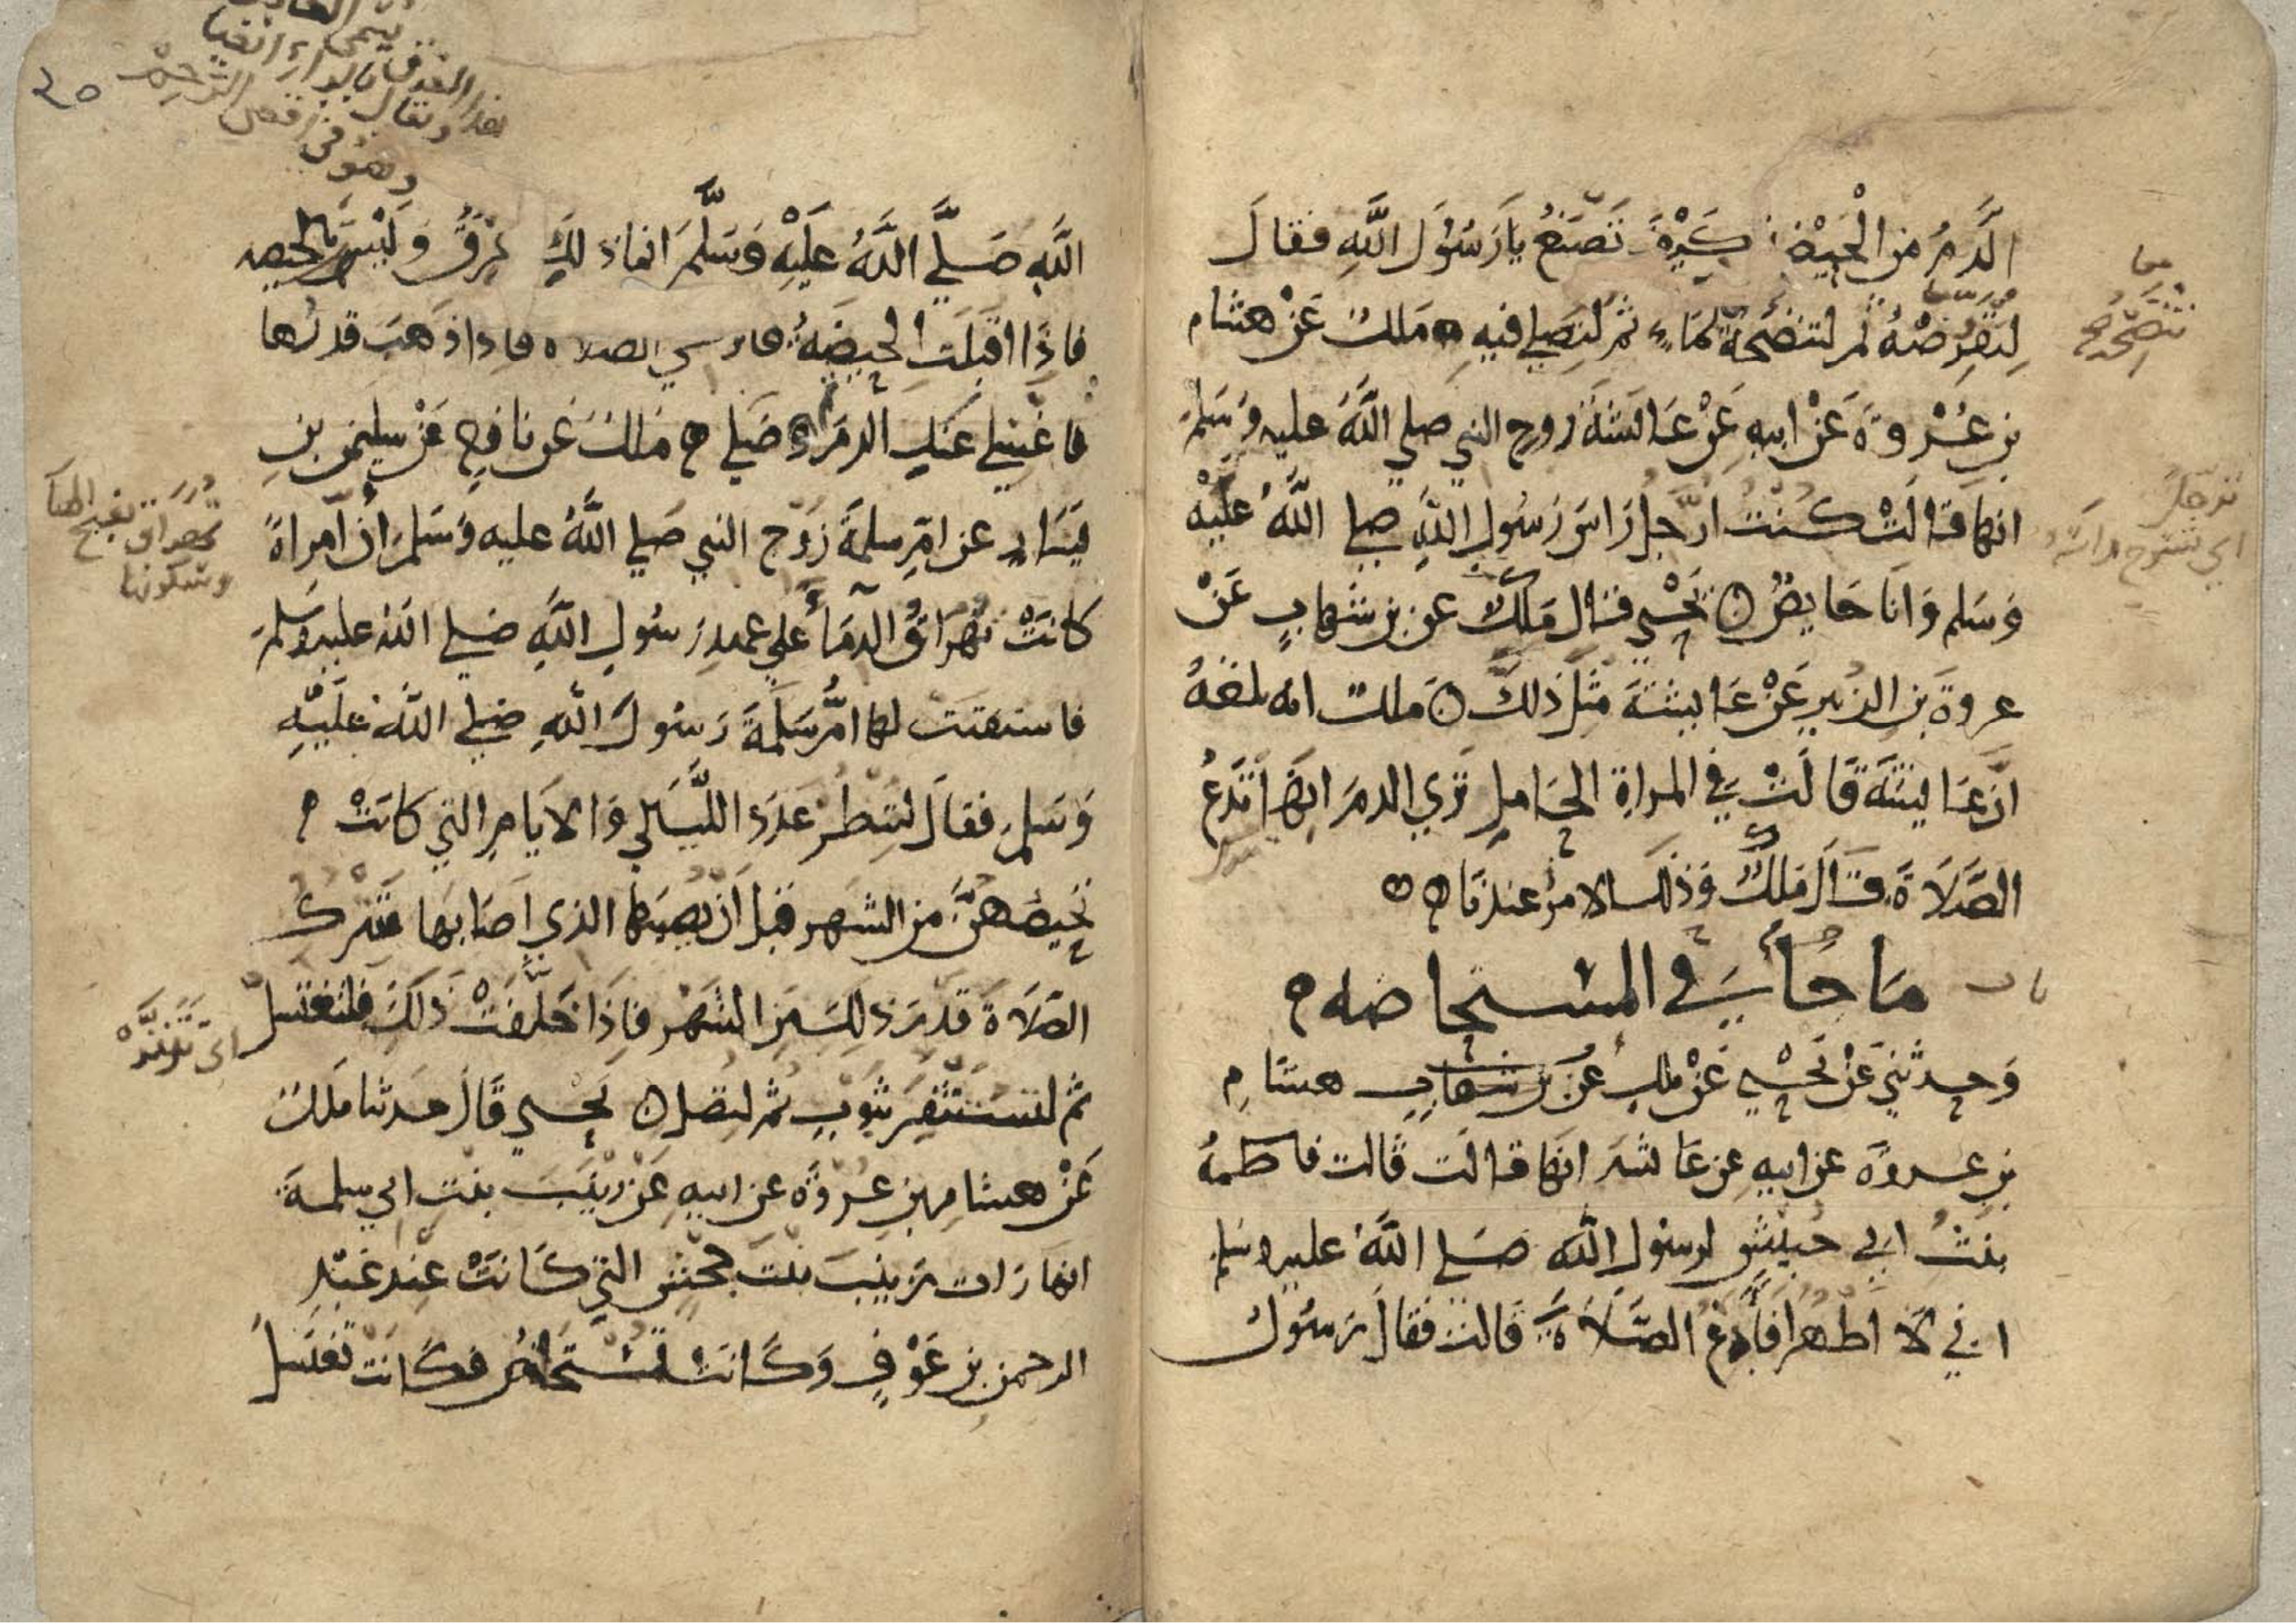 الدَّمُ من الْحَيْضِ كَيْفَ تَصْنَعُ يا رَسُولَ اللَّهِ فقالَ
لِتَقْرُصْهُ ثُم لتنضحهُ بمَاءٍ ثمَّ لتصَلي فيهِ مَلك عَنْ هشام
بنِ عُرْوةَ عَنْ ابيهِ عَنْ عَائشَةَ زوج النبي صلي اللَّهُ عليه وسَلمَ
انها قالَتْ كُنْتُ ارَجِّلُ رَاسَ رَسُولِ اللَّهِ صلي اللَّهُ عَلَيْهِ
وَسَلم وَانَا حَايضٌ يَحْيي قال مَلك عن بن شهابٍ عَنْ
عروةَ بنِ الزبيرِ عَنْ عَايشةَ مثلَ ذلكَ مَلك انه بلغهُ
انَّ عَايشَةَ قَالَتْ في المراةِ الحَاملِ تَري الدمَ انهَا تَدَعُ
الصَّلَاةَ قَالَ مَلكٌ وَذلك الامرُ عندنَا
باب
مَا جَأَ في المستحاضه
وَحدثني عَنْ يَحْيي عَنْ ملك عَنْ بن شهاب هشامِ
بنِ عروةَ عن ابيهِ عن عَائشه انهَا قالَت قَالت فاطمةُ
بنتُ ابي حبيشٍ لرسولِ اللَّه صَلي اللَّهُ عليه وسلم
اني لَا اطْهُرُ افأدعُ الصَّلَاةَ قَالت فقالَ رَسُولُ
تنضحه
ترجل
اي تسرح راسه
اللَّهِ صَلَّي اللَّهُ عَلَيْهِ وَسَلَّمَ انما ذلكِ عِرْقٌ وَلَيْسَتْ بالحيضه
فاذَا اقبلَت الحَيضَةُ فاتركي الصلاه فاذا ذهبَ قدرُها
فاغْسِلي عَنكِ الدمَ وصَلي مَلك عَن نافعٍ عَنْ سليمن بنِ
يَسَارٍ عن امِّ سلمةَ زَوْج النبي صَلي اللَّهُ عليه وَسَلمَ أن امراةً
كانَتْ تُهَرَاقُ الدِّمَأَ عَلي عهدِ رَسُولِ اللَّهِ صَلي اللَّهُ عليه وسَلمَ
فاستفتَت لها امُّ سَلمَةَ رَسُولَ اللَّهِ صلي اللَّهُ عَلَيْهِ
وَسَلم فقالَ لتنظُرْ عَدَدَ اللَّيَالي وَالايَامِ التي كانَتْ
تحيضهُنَّ من الشهرِ قبلَ انْ يصيبَها الذي اصَابهَا فتترك
الصَلَاةَ قدرَ ذلِكَ مِنَ الشَهْرِ فاذَا خَلَّفَتْ ذلكَ فلتغتسل
ثم لتستَثْفِرْ بثوبٍ ثم لتصلِ يَحْيي قَالَ حدثنا مَلك
عَنْ هشامِ بنِ عُرْوَةَ عن ابيهِ عَنْ زينَبَ بنتِ ابي سلمةَ
انها رَات زَينبَ بنتَ جحشٍ التي كَانَتْ عندَ عَبْدِ
الرحمن بنِ عَوْفٍ وَكَانَتْ تُسْتَحَاضُ فكَانَت تغتسلُ
هذا العرق
ويقال
وهو في اقصى الرحم
تهراق بفتح الها
وسكونها